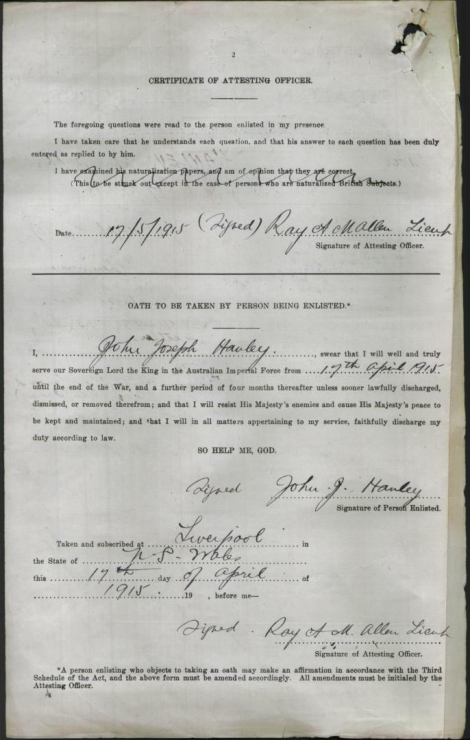 2
CERTIFICATE OF ATTESTING OFFICER.
The foregoing questions were read to the person enlisted in my presence.
I have taken care that he understands each question, and that his answer to each question has been duly
entered as replied to by him.
I have examined his naturalization papers, and am of opinion that they are correct.
(This to be struck out except in the case of persons who are naturalized British Subjects.)
Date 17/5/1915 (Signed) Ray A M Allen Lieut
Signature of Attesting Officer.
OATH TO BE TAKEN BY PERSON BEING ENLISTED.*
I, John Joseph Hanley, swear that I will well and truly
serve our Sovereign Lord the King in the Australian Imperial Force from 17th April 1915
until the end of the War, and a further period of four months thereafter unless sooner lawfully discharged,
dismissed, or removed therefrom; and that I will resist His Majesty's enemies and cause His Majesty's peace to
be kept and maintained; and that I will in all matters appertaining to my service, faithfully discharge my
duty according to law.
SO HELP ME, GOD.
Signed John J. Hanley
Signature of Person Enlisted.
Taken and subscribed at Liverpool in
the State of N. S. Wales
this 17th day of April of
1915. 19 , before me—
Signed. Ray A. M. Allen Lieut
Signature of Attesting Officer.
*A person enlisting who objects to taking an oath may make an affirmation in accordance with the Third
Schedule of the Act, and the above form must be amended accordingly. All amendments must be initialed by the
Attesting Officer.